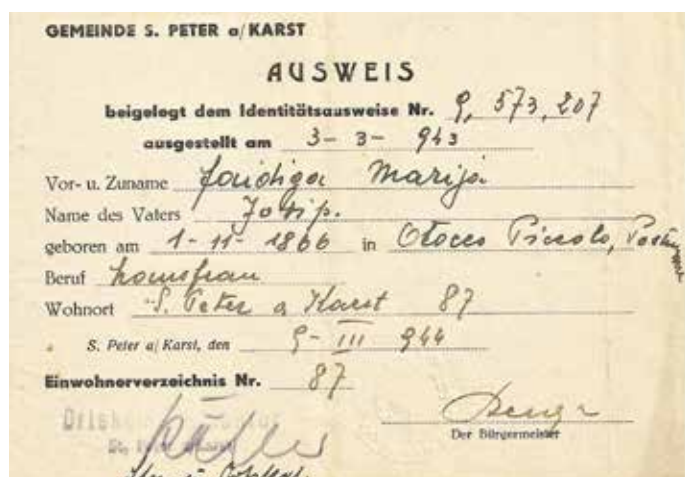 GEMEINDE S. PETER a/KARST
AUSWEIS
beigelegt dem Identitätsausweise Nr. 9, 573, 207
ausgestellt am 3-3-943
Vor- u. Zuname Faidiga Marija
Name des Vaters Josip.
geboren am 1-11-1866 in Otocco Piccolo,
Beruf Hausfrau
Wohnort S. Peter a Karst 87
S. Peter a/Karst, den 9-III 944
Einwohnerverzeichnis Nr. 87
Der Bürgermeister